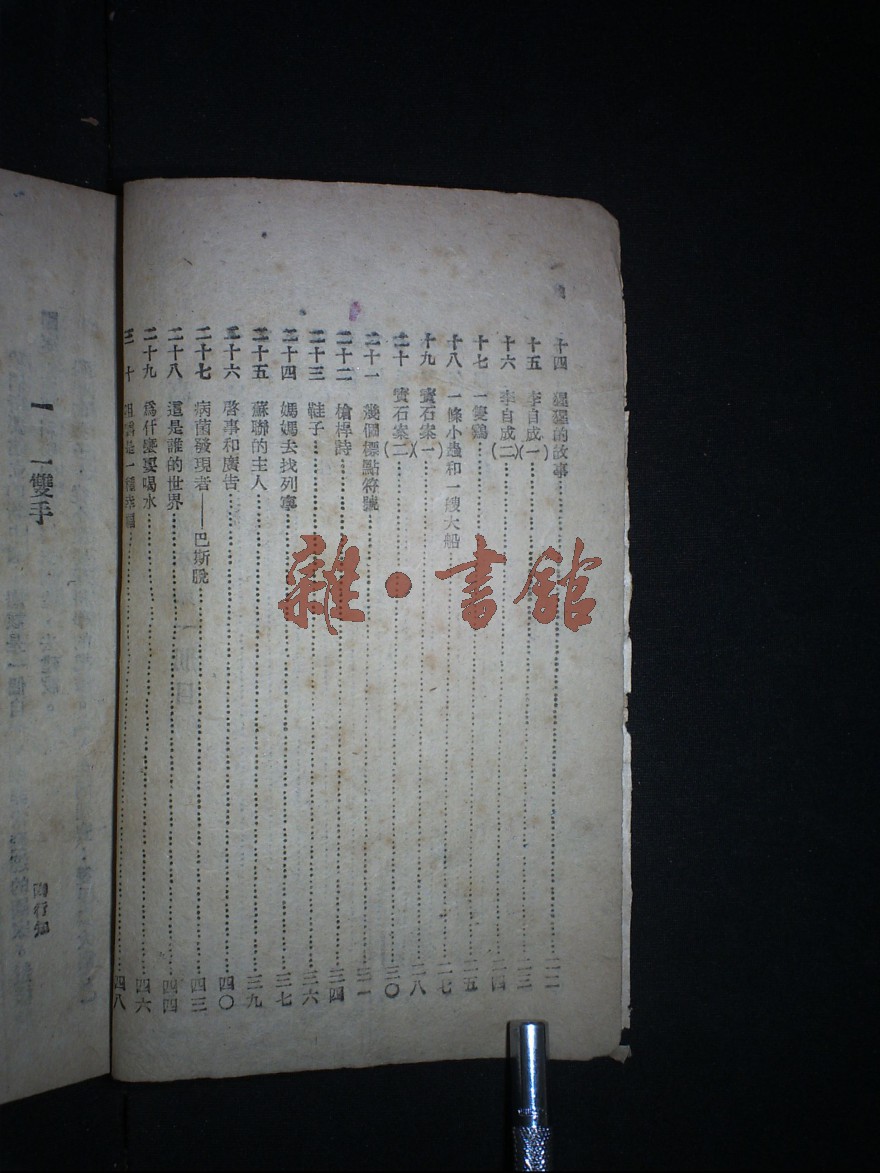 十四 猩猩的故事……二二
十五 李自成(一)……二三
十六 李自成(二)……二四
十七 一隻鷄……二五
十八 一條小蟲和一艘大船……二七
十九 寶石案(一)……二八
二十 寶石案(二)……三〇
二十一 幾個標點符號……三一
二十二 槍桿詩……三四
二十三 鞋子……三六
二十四 媽媽去找列寧……三七
二十五 蘇聯的主人……三九
二十六 啓事和廣告……四〇
二十七 病菌發現者——巴斯脫……四三
二十八 這是誰的世界……四四
二十九 爲什麽要喝水……四六
三十 是一種……四八
一 一雙手
陶行知
雜·書館